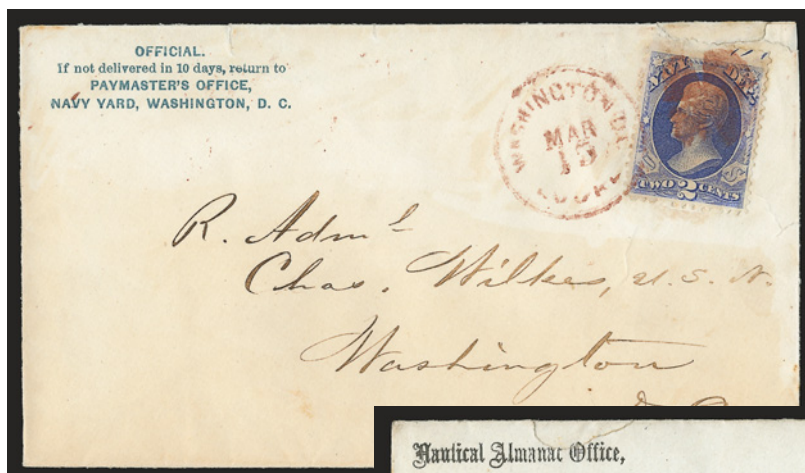 OFFICIAL.
If not delivered in 10 days, return to
PAYMASTER'S OFFICE,
NAVY YARD, WASHINGTON, D. C.
WASHINGTON D.C.
MAR
15
NAVY DEPT
U S
TWO 2 CENTS
R. Adml
Chas. Wilkes, U. S. N.
Washington
Nautical Almanac Office,